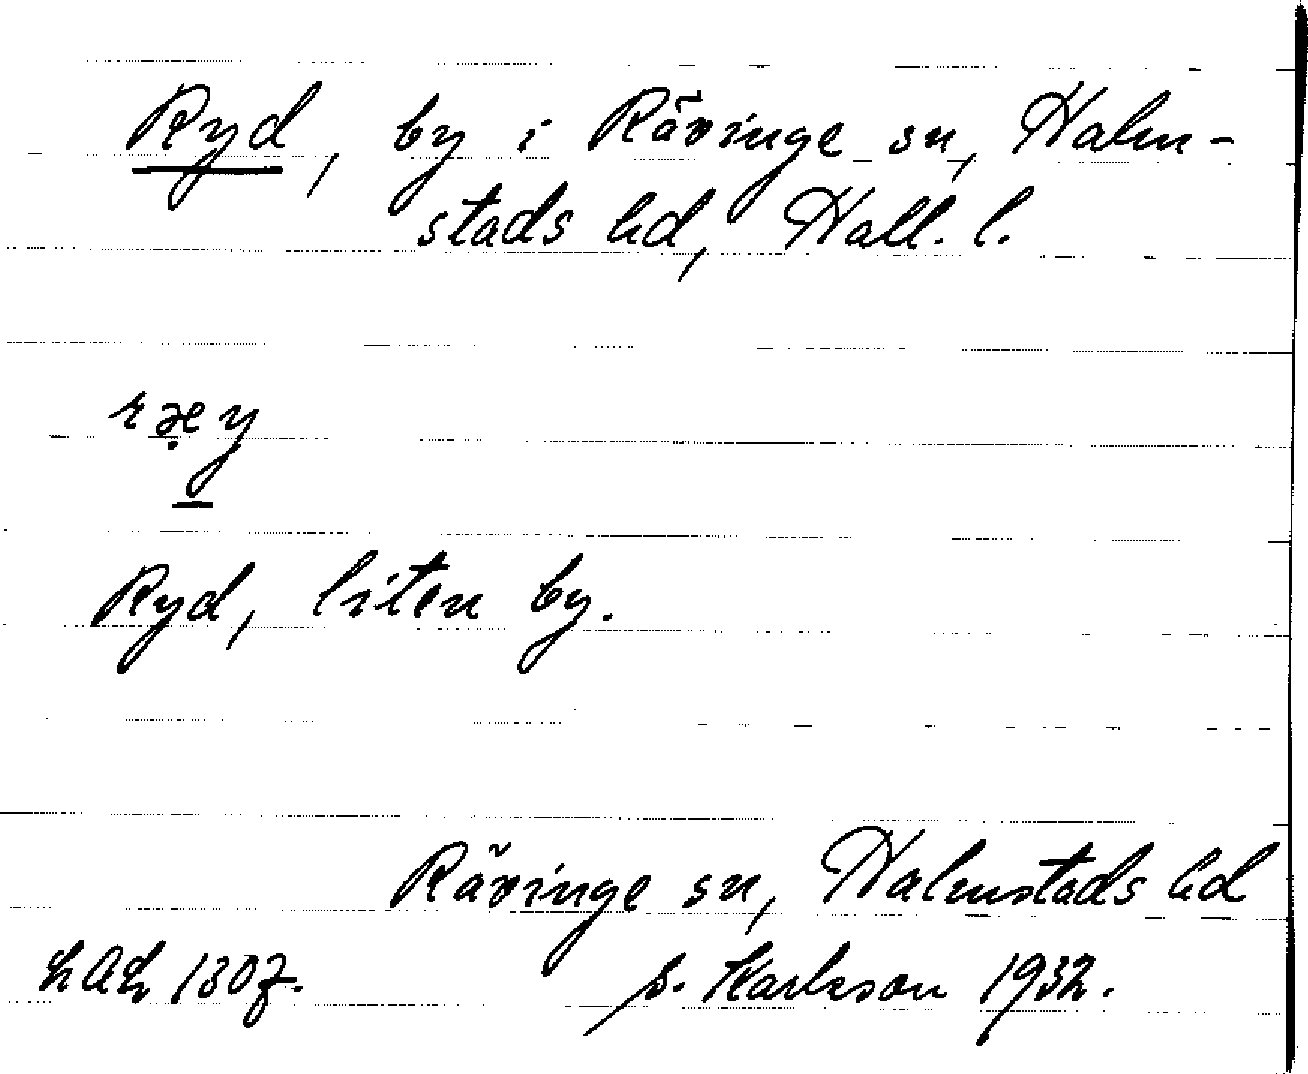 Ryd, by i Rävinge sn, Halm-
stads hd, Hall. l.
Ryd, liten by.
Rävinge sn, Halmstads hd
S. Karlsson 1932.